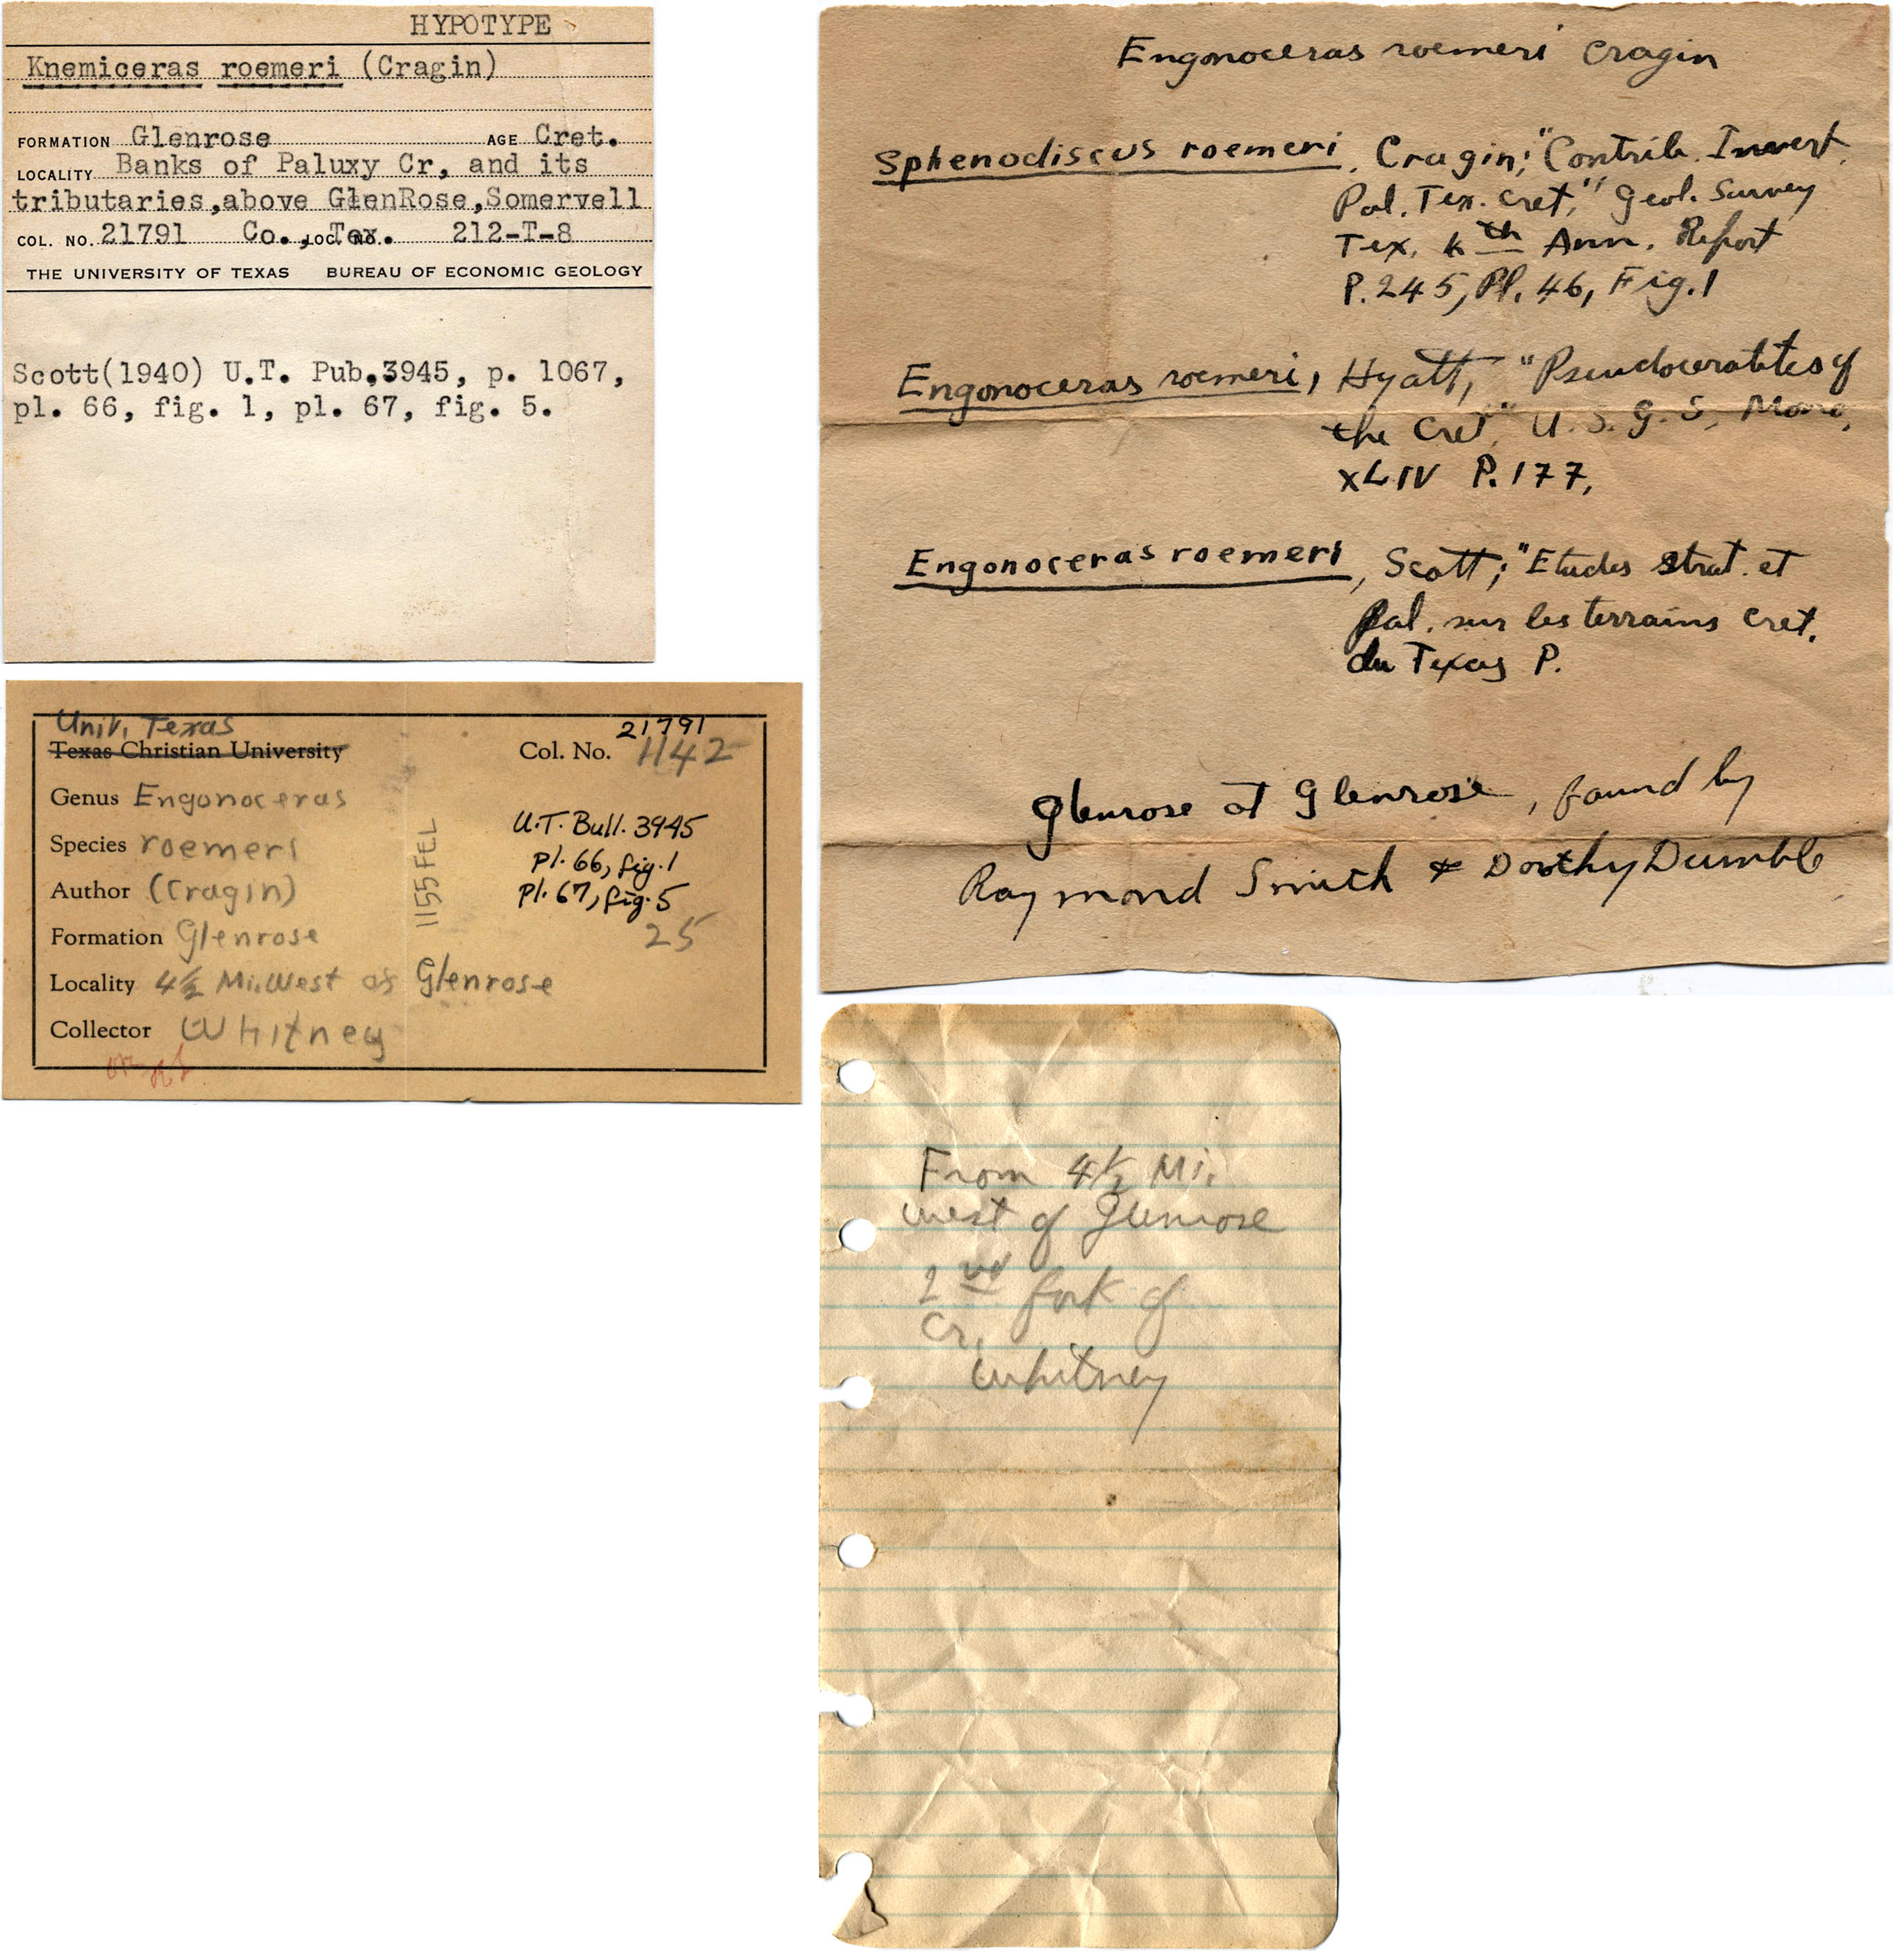 HYPOTYPE
Knemiceras roemeri (Cragin)
FORMATION Glenrose AGE Cret.
LOCALITY Banks of Paluxy Cr, and its
tributaries,above GlenRose,Somervell
COL. NO. 21791 Co., Tex. LOC. NO. 212-T-8
THE UNIVERSITY OF TEXAS BUREAU OF ECONOMIC GEOLOGY
Scott(1940) U.T. Pub.3945, p. 1067,
pl. 66, fig. 1, pl. 67, fig. 5.
Univ. Texas
Texas Christian University
Col. No. 1142
21791
Genus Engonoceras
Species roemeri
Author (Cragin)
Formation Glenrose
Locality 4½ Mi. West of Glenrose
Collector Whitney
1155 FEL
U.T. Bull. 3945
pl. 66, fig. 1
pl. 67, fig. 5
25
Engonoceras roemeri Cragin
Sphenodiscus roemeri, Cragin; "Contrib. Invert.
Pal. Tex. Cret," Geol. Survey
Tex. 4th Ann. Report
P. 245, Pl. 46, Fig. 1
Engonoceras roemeri, Hyatt, "Pseudoceratites of
the Cret," U.S.G.S. Mono,
XLIV P. 177,
Engonoceras roemeri, Scott; "Etudes strat. et
Pal. sur les terrains Cret.
du Texas P.
Glenrose at Glenrose, found by
Raymond Smith & Dorthy Dumble
From 4½ Mi.
west of Glenrose
2nd fork of
Cr.
Whitney